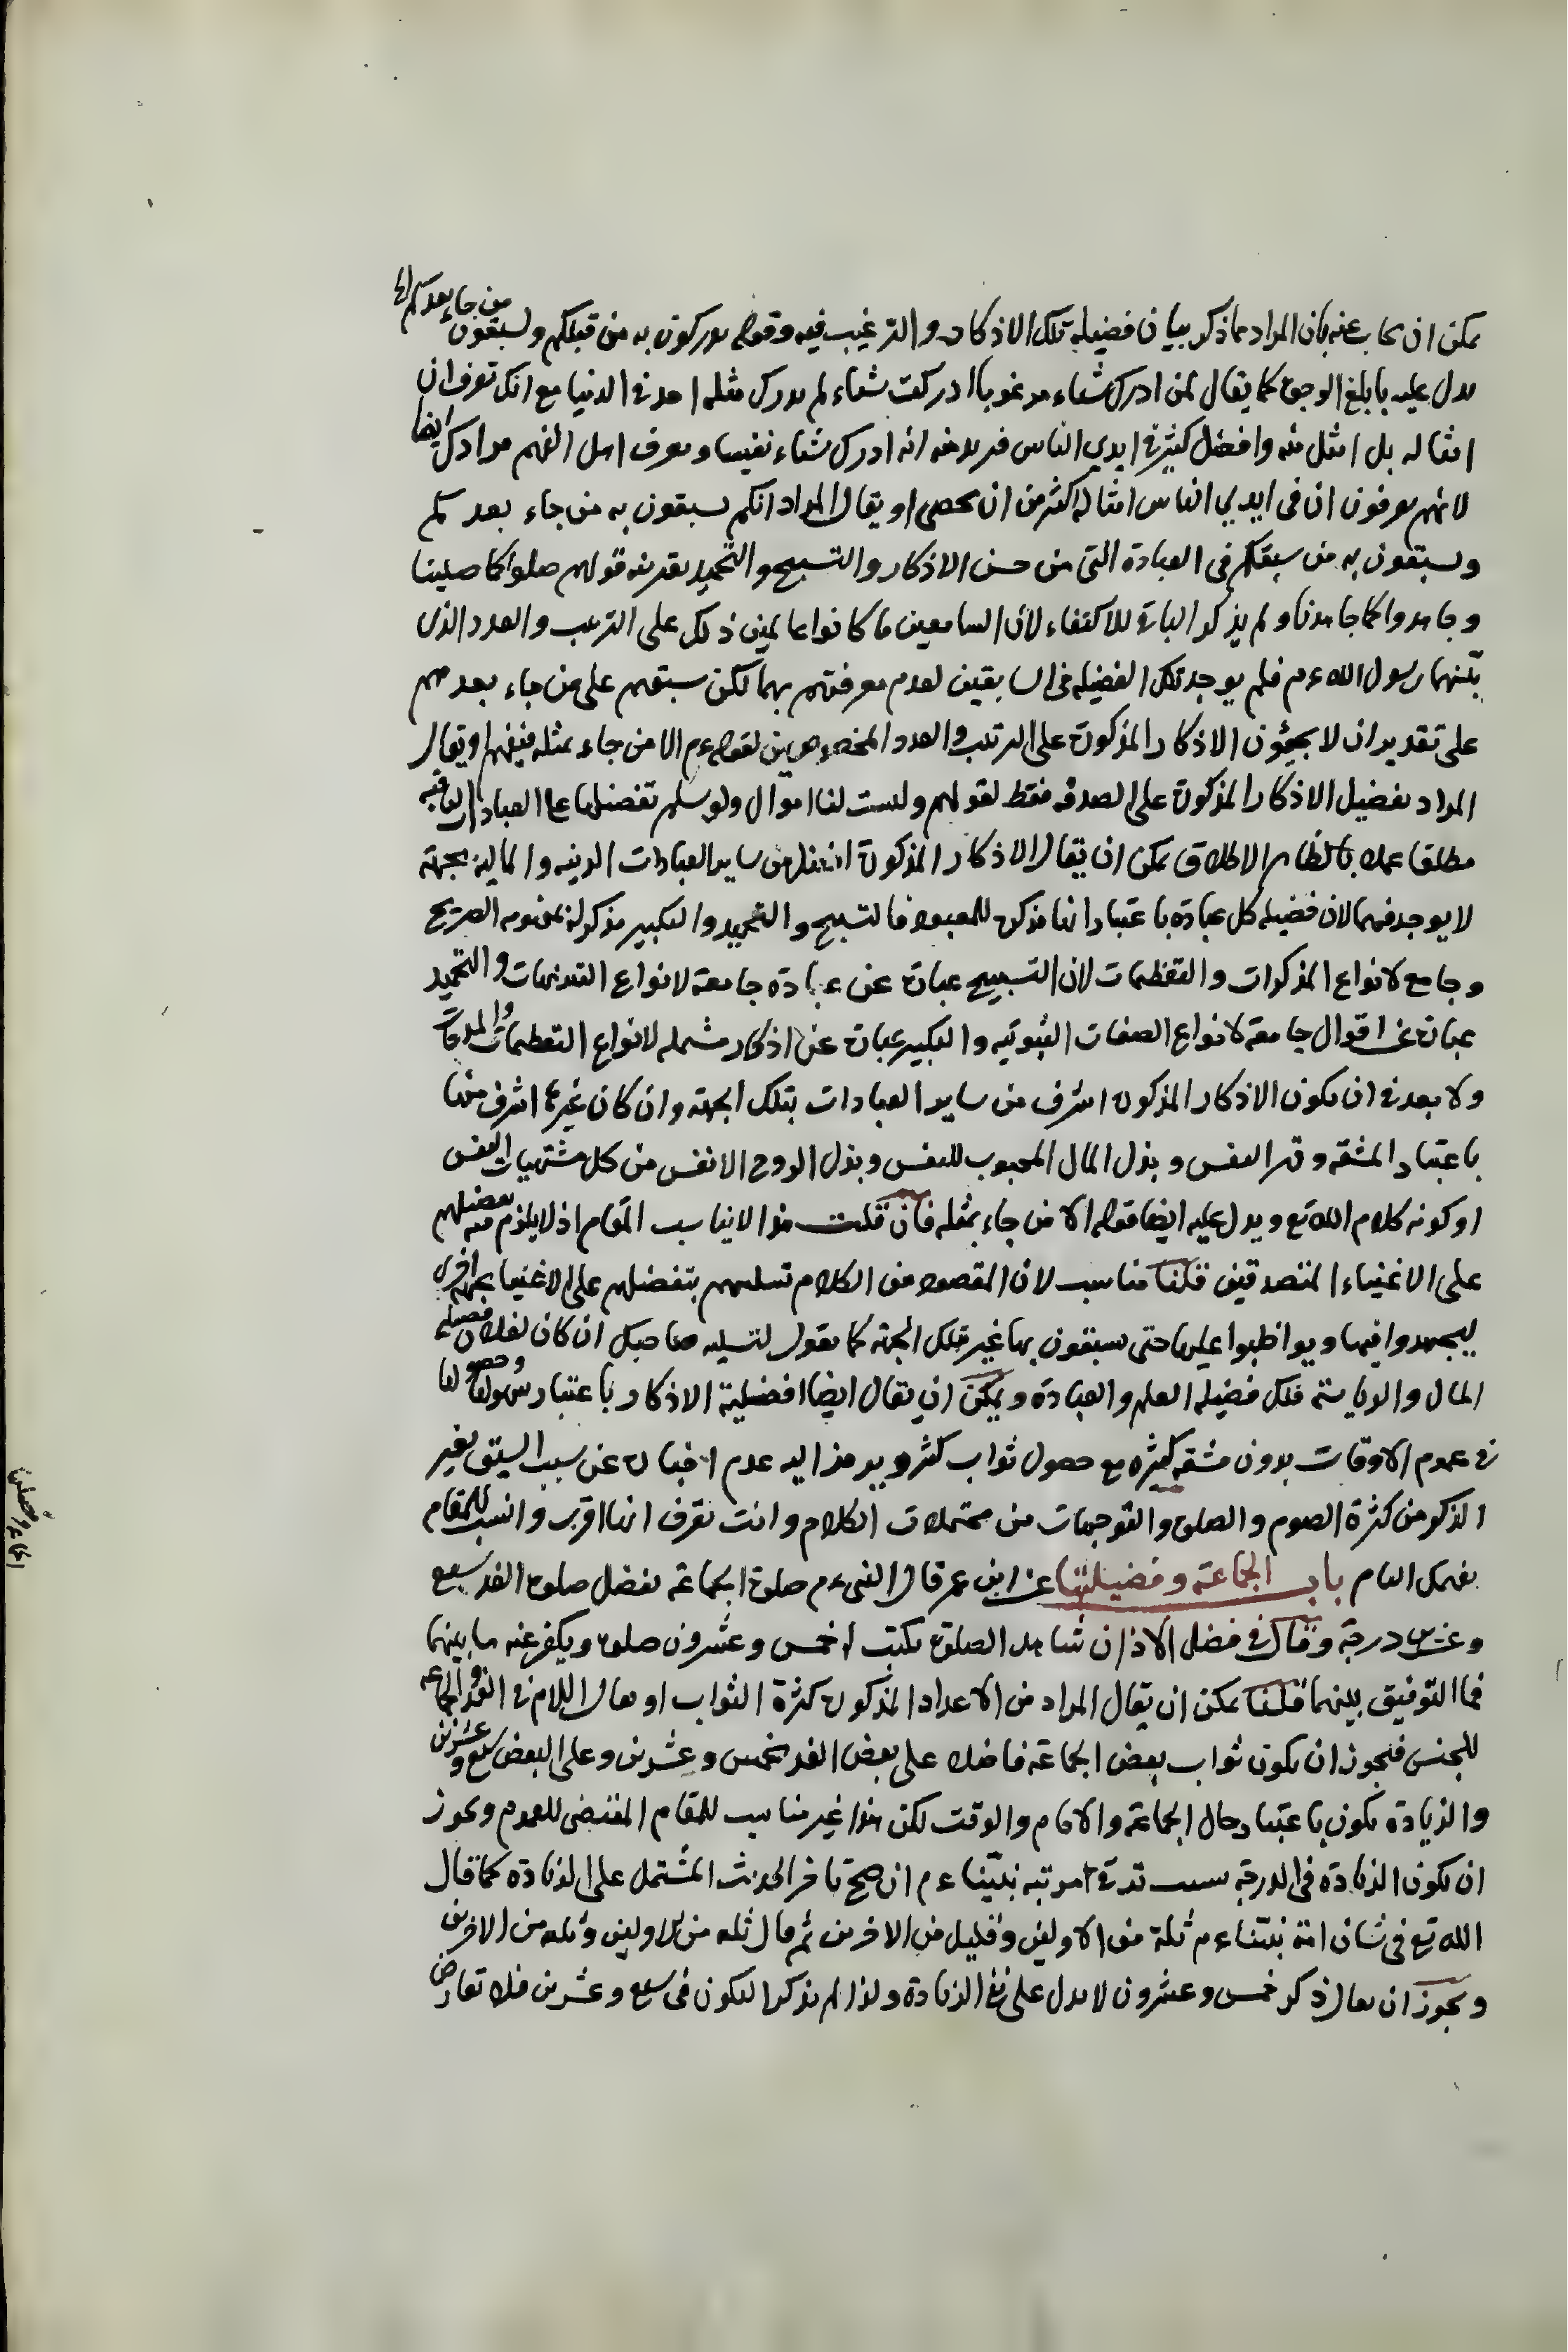 يمكن ان يجاب عنه بان المراد مما ذكر بيان فضيلة تلك الاذكار والترغيب فيه وقوله يدركون به من قبلكم ويسبقون من جاء بعدكم
يدل عليه بابلغ الوجوه كما يقال لمن ادرك شياء مرغوبا ادركت شياء لم يدرك مثله احد في الدنيا مع انك تعرف ان
امثاله بل امثل منه وافضل كثير في ايدي الناس فيريد منه انه ادرك شياء نفيسا ويعرف اهل الفهم مرادك ايضا
لانهم يعرفون ان في ايدي الناس امثاله اكثر من ان يحصى او يقال المراد انكم تسبقون به من جاء بعدكم
وتسبقون به من سبقكم في العبادة التي من جنس الاذكار والتسبيح والتحميد بقرينة قولهم صلوا كما صلينا
وجاهدوا كما جاهدنا ولم يذكر الباقي للاكتفاء لان السامعين ما كانوا عالمين ذلك على الترتيب والعدد الذى
بيّنهما رسول الله ءم فلم يوجد تلك الفضيلة في السابقين لعدم معرفتهم بهما لكن سبقهم على من جاء بعدهم
على تقدير ان لا يجيئون الاذكار المذكورة على الترتيب والعدد المخصوصين لقوله ءم الا من جاء بمثله فيفهم او يقال
المراد تفضيل الاذكار المذكورة على الصدقة فقط لقولهم وليست لنا اموال ولو سلم تفضيلها على العبادات الباقية
مطلقا عملا بالظاهر الاطلاق يمكن ان يقال الاذكار المذكورة افضل من ساير العبادات البدنية والمالية بجهة
لا يوجد فيهما لان فضيلة كل عبادة باعتبار انها مذكرة للمعبود فالتسبيح والتحميد والتكبير مذكر له بمفهومه الصريح
وجامع لانواع المذكرات والتعظيمات لان التسبيح عبارة عن عبادة جامعة لانواع التقديسات والتحميد
عبارة عن اقوال جامعة لانواع الصفات الثبوتية والتكبير عبارة عن اذكار مشتملة لانواع التعظيمات والمدحات
ولا بعد في ان يكون الاذكار المذكورة اشرف من ساير العبادات بتلك الجهة وان كان غيرها اشرف منها
باعتبار المشقة وقهر النفس وبذل المال المحبوب للنفس وبذل الروح الانفس من كل مشتهيات النفس
او كونه كلام الله تع ويدل عليه ايضا قوله الا من جاء بمثله فان قلت هذا لا يناسب المقام اذ لا يلزم منه تفضيلهم
على الاغنياء المتصدقين قلنا مناسب لان المقصود من الكلام تسليهم بتفضيلهم على الاغنياء بجهة اخرى
ليجهدوا فيها ويواظبوا عليها حتى يسبقون بها غير تلك الجهة كما تقول لتسلية صاحبك ان كان لفلان فضيلة
المال والرياسة فلك فضيلة العلم والعبادة ويمكن ان يقال ايضا افضلية الاذكار باعتبار سهولتها وحصولها
في عموم الاوقات بدون مشقة كثيرة مع حصول ثواب كثير ويرد هذا اليه عدم عن سبب السبق بغير
الذكر من كثرة الصوم والصلوة والتوجيهات من محتملات الكلام وانت تعرف انها اقرب وانسب للمقام
بفهمك التام باب الجماعة وفضيلتها عن ابن عمر قال النبى ءم صلوة الجماعة تفضل صلوة الفذ بسبع
وعشرين درجة وقال في فضل الاذان شاهد الصلوة يكتب له خمس وعشرون صلوة ويكفر عنه ما بينهما
فما التوفيق بينهما قلنا يمكن ان يقال المراد من الاعداد المذكورة كثرة الثواب او يقال اللام في الفذ والجماعة
للجنس فيجوز ان يكون ثواب بعض الجماعة فاضلا على بعض الفذ بخمس وعشرين وعلى البعض بسبع وعشرين
والزيادة يكون باعتبار حال الجماعة والامام والوقت لكن هذا غير مناسب للمقام المقتضى للعموم ويجوز
ان يكون الزيادة في الدرجة بسبب ترقى مرتبة نبيّنا ءم ان صح تاخر الحديث المشتمل على الزيادة كما قال
الله تع في شان امة نبيّنا ءم ثلة من الاولين وقليل من الاخرين ثم قال ثلة من الاولين وثلة من الاخرين
ويجوز ان يقال ذكر خمس وعشرون لا يدل على نفى الزيادة ولذا لم يذكرا ليكون في سبع وعشرين فلا تعارض